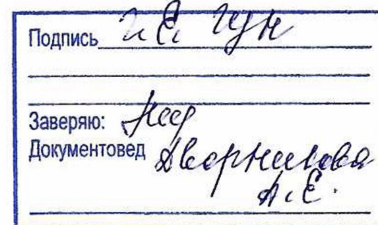 Подпись И.Е. Гун
Заверяю:
Документовед Дворникова
А.Е.